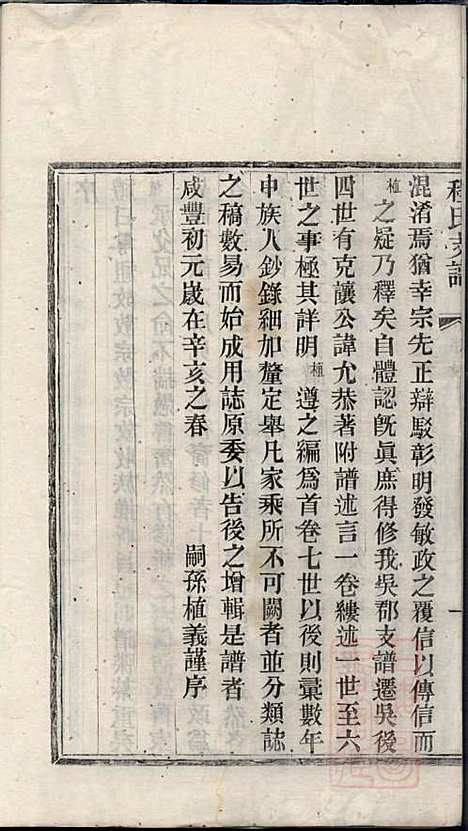 程氏支譜
混淆焉猶幸宗先正辯駁彰明發敏政之覆信以傳信而
植之疑乃釋矣自體認旣眞庶得修我吳郡支譜遷吳後
四世有克讓公諱允恭著附譜述言一卷縷述一世至六
世之事極其詳明植遵之編爲首卷七世以後則彙數年
中族人鈔錄細加釐定舉凡家乘所不可闕者並分類誌
之稿數易而始成用誌原委以告後之增輯是譜者
咸豐初元歲在辛亥之春　嗣孫植義謹序